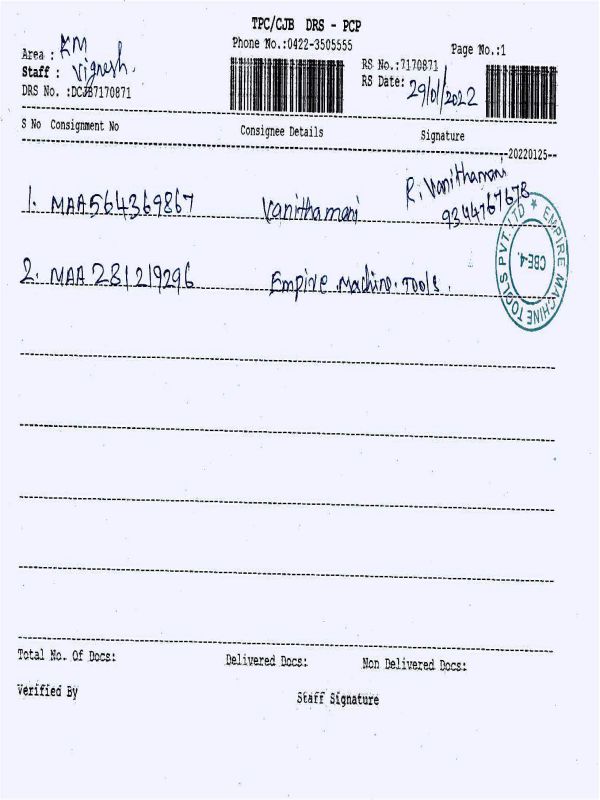 TPC/CJB DRS - PCP
Phone No.:0422-3505555
Page No.:1
Area : KM
Staff : Vignesh.
DRS No. :DCJB7170871
RS No.:7170871
RS Date: 29/01/2022
S No Consignment No Consignee Details Signature
20220125
1. MAA564369867 Vanithamani R. Vanithamani
9344767678
2. MAA 281219296 Empire Machine Tools.
EMPIRE MACHINE TOOLS PVT. LTD ★
CBE-4.
Total No. Of Docs: Delivered Docs: Non Delivered Docs:
Verified By Staff Signature